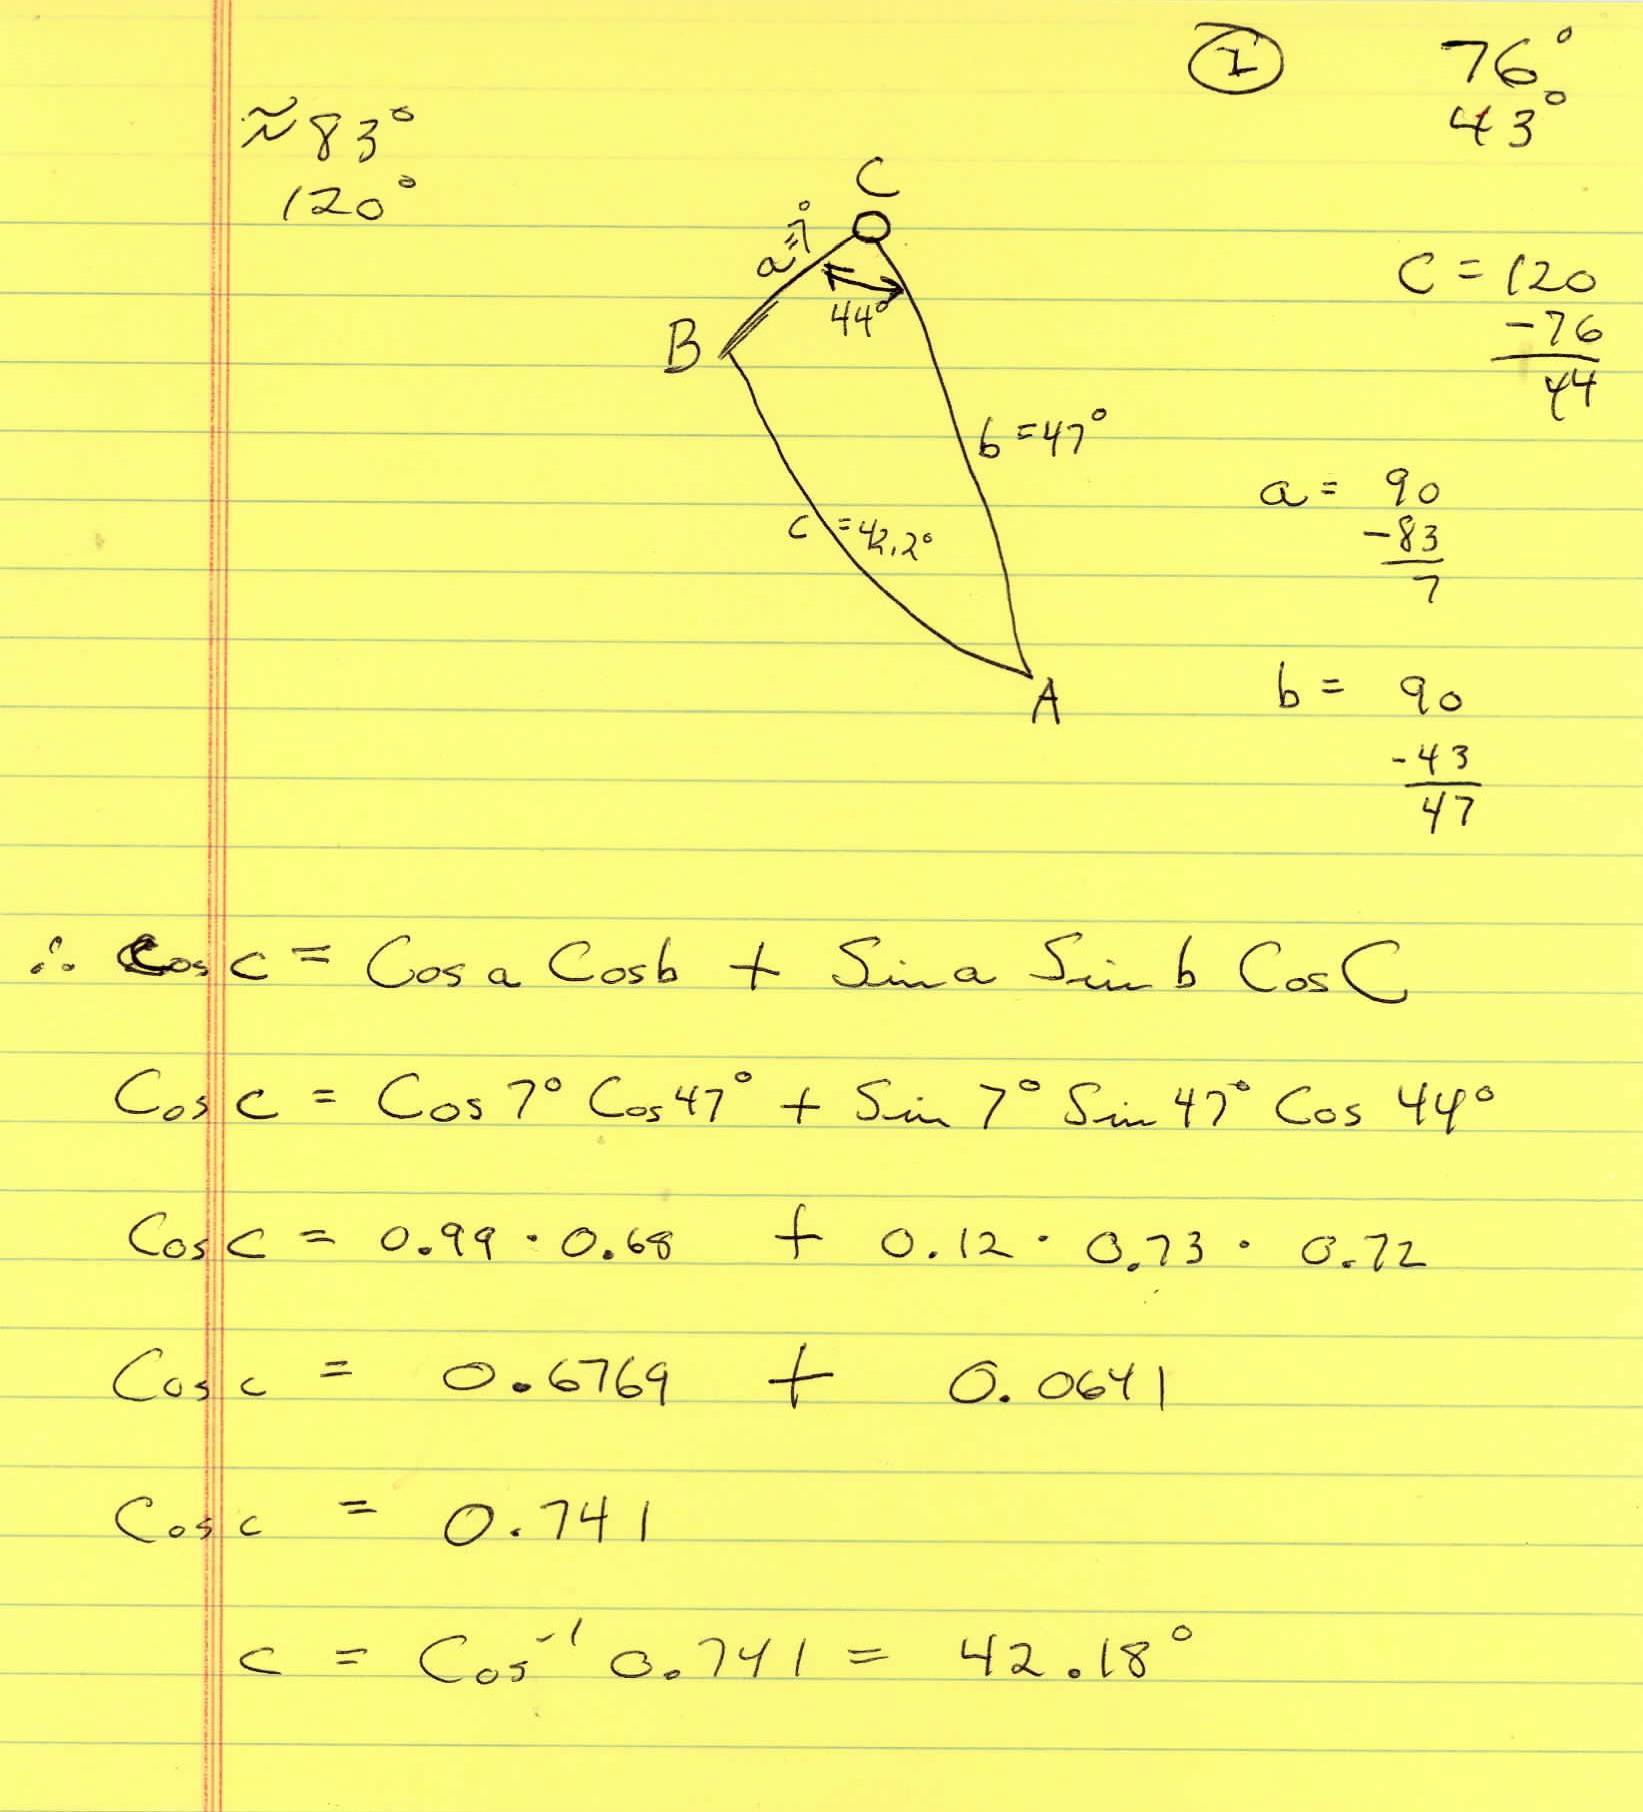 ① 76°
43°
≈83°
120°
C
a=7°
44°
B
b=47°
c=42.2°
A
C = 120
-76
44
a = 90
-83
7
b = 90
-43
47
∴ Cos c = Cos a Cos b + Sin a Sin b Cos C
Cos c = Cos 7° Cos 47° + Sin 7° Sin 47° Cos 44°
Cos c = 0.99 · 0.68 + 0.12 · 0.73 · 0.72
Cos c = 0.6769 + 0.0641
Cos c = 0.741
c = Cos⁻¹ 0.741 = 42.18°